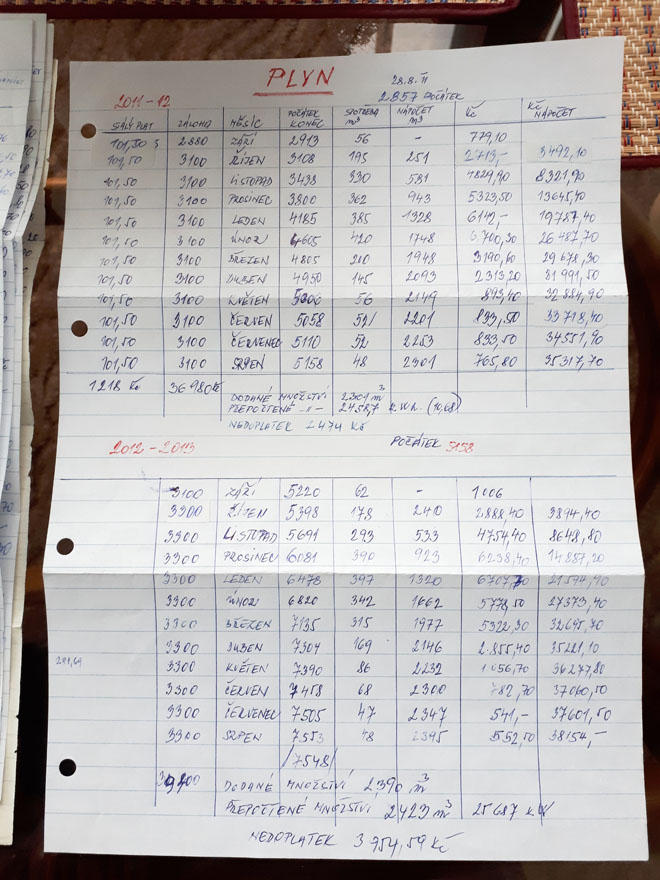 PLYN
28.8.11
2011-12 2857 POČÁTEK
STÁLÝ PLAT ZÁLOHA MĚSÍC POČÁTEK KONEC SPOTŘEBA m³ NÁPOČET m³ Kč Kč NÁPOČET
101,50 2880 ZÁŘÍ 2913 56 - 779,10
101,50 3100 ŘÍJEN 3108 195 251 2713,- 3492,10
101,50 3100 LISTOPAD 3438 330 581 4829,90 8321,90
101,50 3100 PROSINEC 3800 362 943 5323,50 13645,40
101,50 3100 LEDEN 4185 385 1328 6142,- 19787,40
101,50 3100 ÚNOR 4605 420 1748 6700,30 26487,70
101,50 3100 BŘEZEN 4805 200 1948 3190,60 29678,30
101,50 3100 DUBEN 4950 145 2093 2313,20 31991,50
101,50 3100 KVĚTEN 5006 56 2149 893,40 32884,90
101,50 3100 ČERVEN 5058 52 2201 833,50 33718,40
101,50 3100 ČERVENEC 5110 52 2253 833,50 34551,90
101,50 3100 SRPEN 5158 48 2301 765,80 35317,70
1218 Kč 36980 Kč
DODANÉ MNOŽSTVÍ 2301 m³
PŘEPOČTENÉ -"- 24587 k.W.h. (10,68)
NEDOPLATEK 2474 Kč
2012-2013 POČÁTEK 5158
3100 ZÁŘÍ 5220 62 - 1006
3300 ŘÍJEN 5398 178 240 2888,40 3894,40
3300 LISTOPAD 5691 293 533 4754,40 8648,80
3300 PROSINEC 6081 390 923 6238,40 14887,20
3300 LEDEN 6478 397 1320 6707,70 21594,90
3300 ÚNOR 6820 342 1662 5778,50 27373,40
3300 BŘEZEN 7135 315 1977 5322,30 32695,70
3300 DUBEN 7304 169 2146 2855,40 35221,10
291,64
3300 KVĚTEN 7390 86 2232 1056,70 36277,80
3300 ČERVEN 7458 68 2300 782,70 37060,50
3300 ČERVENEC 7505 47 2347 541,- 37601,50
3300 SRPEN 7553 48 2395 552,50 38154,-
/7548/
DODANÉ MNOŽSTVÍ 2390 m³
PŘEPOČTENÉ MNOŽSTVÍ 2423 m³ 25687 k.W
NEDOPLATEK 3954,59 Kč